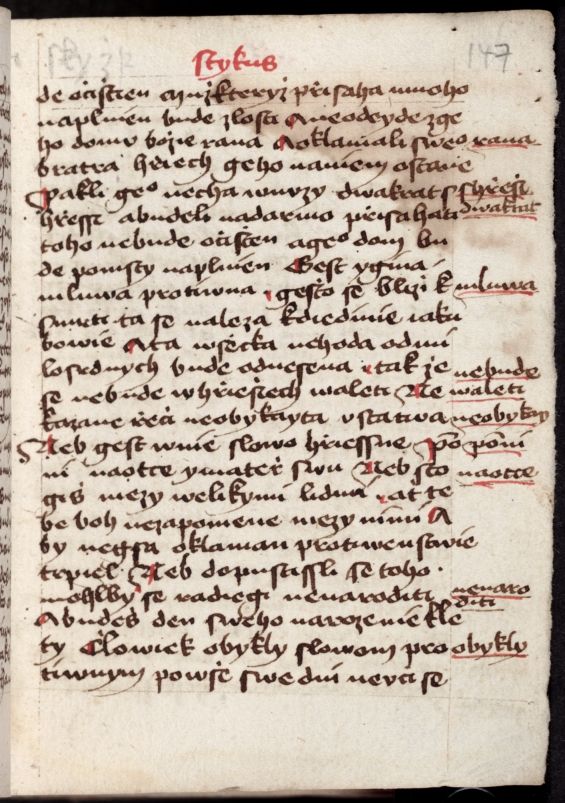 147
stykus
de očistien muž kteryž přisaha mnoho
naplnien bude zlosti A neodeyde z ge
ho domu božie rana A oklamali sweo rana
bratra hřiech geho na niem ostane
Pakli geo necha w nurzy dwakrat s shřeši
hřesse a budeli nadarmo přisahati dwakrat
toho nebude očisten a geo dom bu
de pomsty naplnien Gest y gina
mluwa protiwna gesto se bliži k mluwa
smrti ta se naleza k diedinie iaku
bowie A ta wsecka nehoda od mi
losrdnych bude odnesena tak že nebude
se nebude w hřiešiech waleti Ne waleti
kazane řeči neobykay ta usta twa neobykay
Neb gest w nie slowo hřiessne Po pomi
ni na otce y mateř swu Neb sto na otce
giš mezy welikymi lidmi at te
be boh nezapomene mezy nimi A
by negsa oklaman protiwenstwie
trpiel Neb dopustissli se toho
mohlby se radiegi nenaroditi nenaro
diti
A budeš den sweho narozenie kle
ty Člowiek obykly slowom pro obykly
tiwnym po wše swe dni neuci se